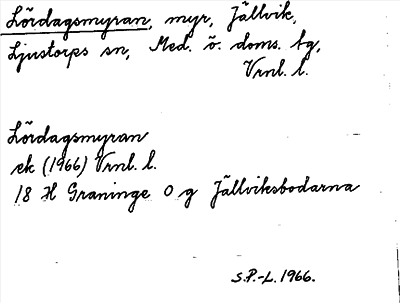 Lördagsmyran, myr, Jällvik,
Ljustorps sn, Med. ö. doms. tg,
Vrnl. l.
Lördagsmyran
ek (1966) Vrnl. l.
18 H Graninge 0 g Jällviksbodarna
S.P.-L. 1966.